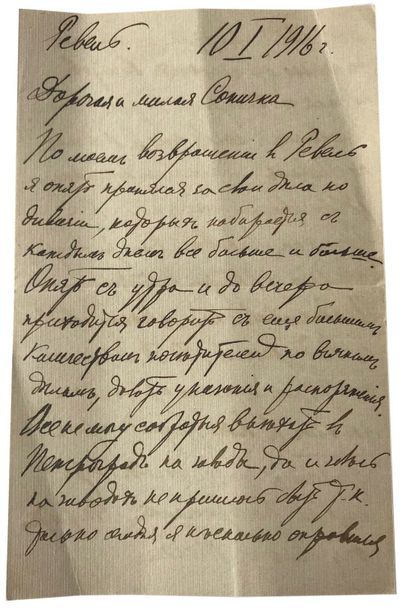 Ревель. 10 I 1916 г.
Дорогая и милая Соничка
По моемъ возвращеніи въ Ревель
я опять принялся за свои дела по
дивизіи, которыхъ набирается съ
каждымъ днемъ все больше и больше.
Опять съ утра и до вечера
приходится говорить съ еще большимъ
количествомъ посетителей по всякимъ
деламъ, давать указанія и распоряженія.
Все не могу собраться выехать въ
Петроградъ на заводы, да и здесь
на заводахъ не пришлось быть т. к.
только сегодня я несколько оправился